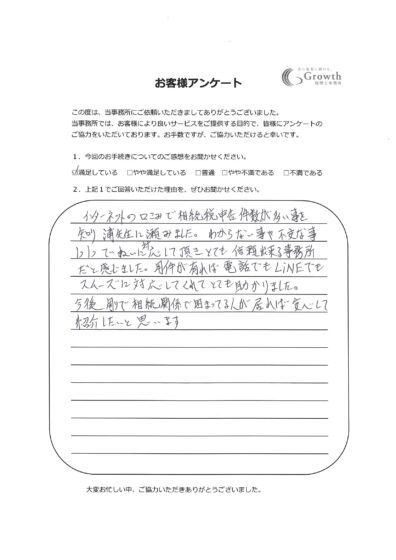 共に未来に繋がる、
Growth
税理士事務所
お客様アンケート
この度は、当事務所にご依頼いただきましてありがとうございました。
当事務所では、お客様により良いサービスをご提供する目的で、皆様にアンケートの
ご協力をいただいております。お手数ですが、ご協力いただけると幸いです。
１．今回のお手続きについてのご感想をお聞かせください。
☑満足している　□やや満足している　□普通　□やや不満である　□不満である
２．上記１でご回答いただけた理由を、ぜひお聞かせください。
インターネットの口こみで相続税申告件数が多い事を
知り 先生に頼みました。わからない事や不安な事
1つ1つていねいに対応して頂きとても信頼出来る事務所
だと感じました。用件が有れば電話でもLiNEでも
スムーズに対応してくれてとても助かりました。
今後 周りで相続関係で困まってる人が居れば安心して
紹介したいと思います
大変お忙しい中、ご協力いただきありがとうございました。